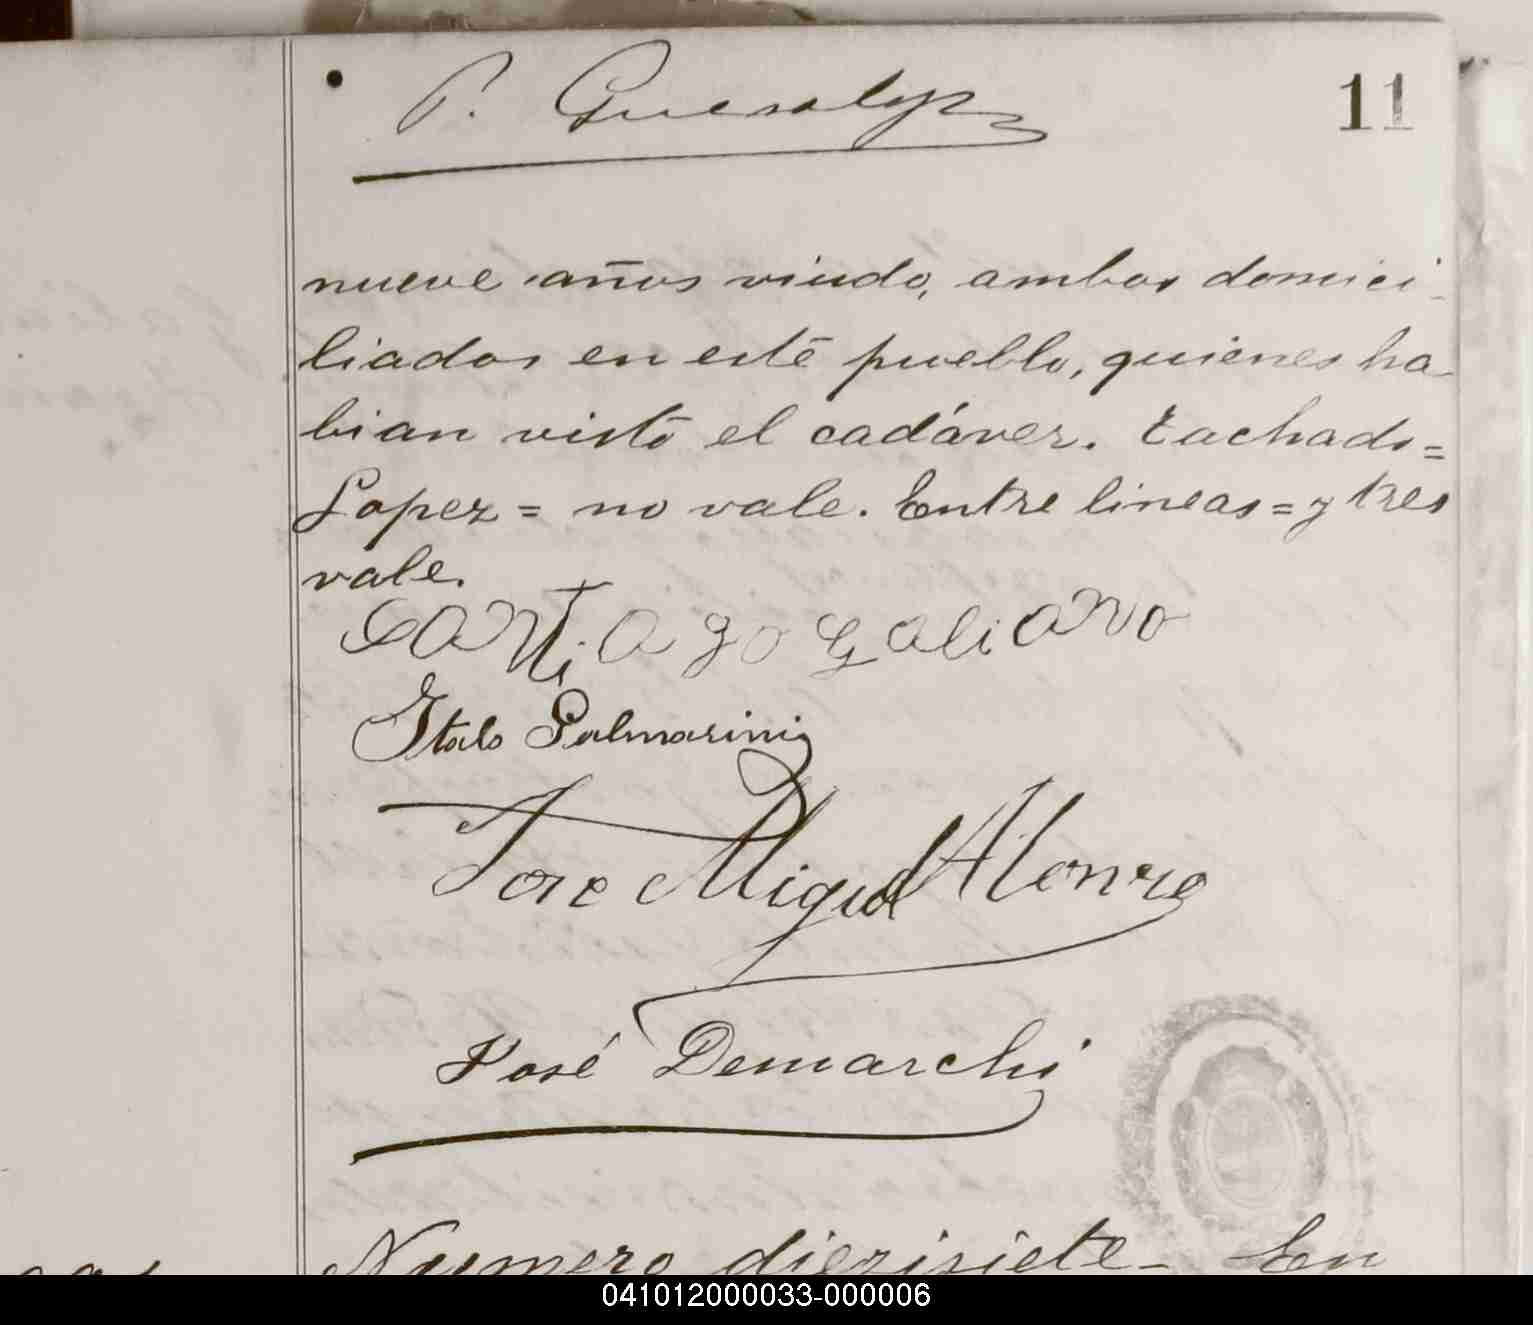 P.
11
nueve años viudo, ambos domici-
liados en este pueblo, quienes ha-
bian visto el cadáver. Tachado=
Lopez= no vale. Entre lineas= y tres
vale.
Santiago Galiano
Italo Palmarini
Jose Miguel Alonzo
José Demarchi
Numero diezisiete- En
041012000033-000006